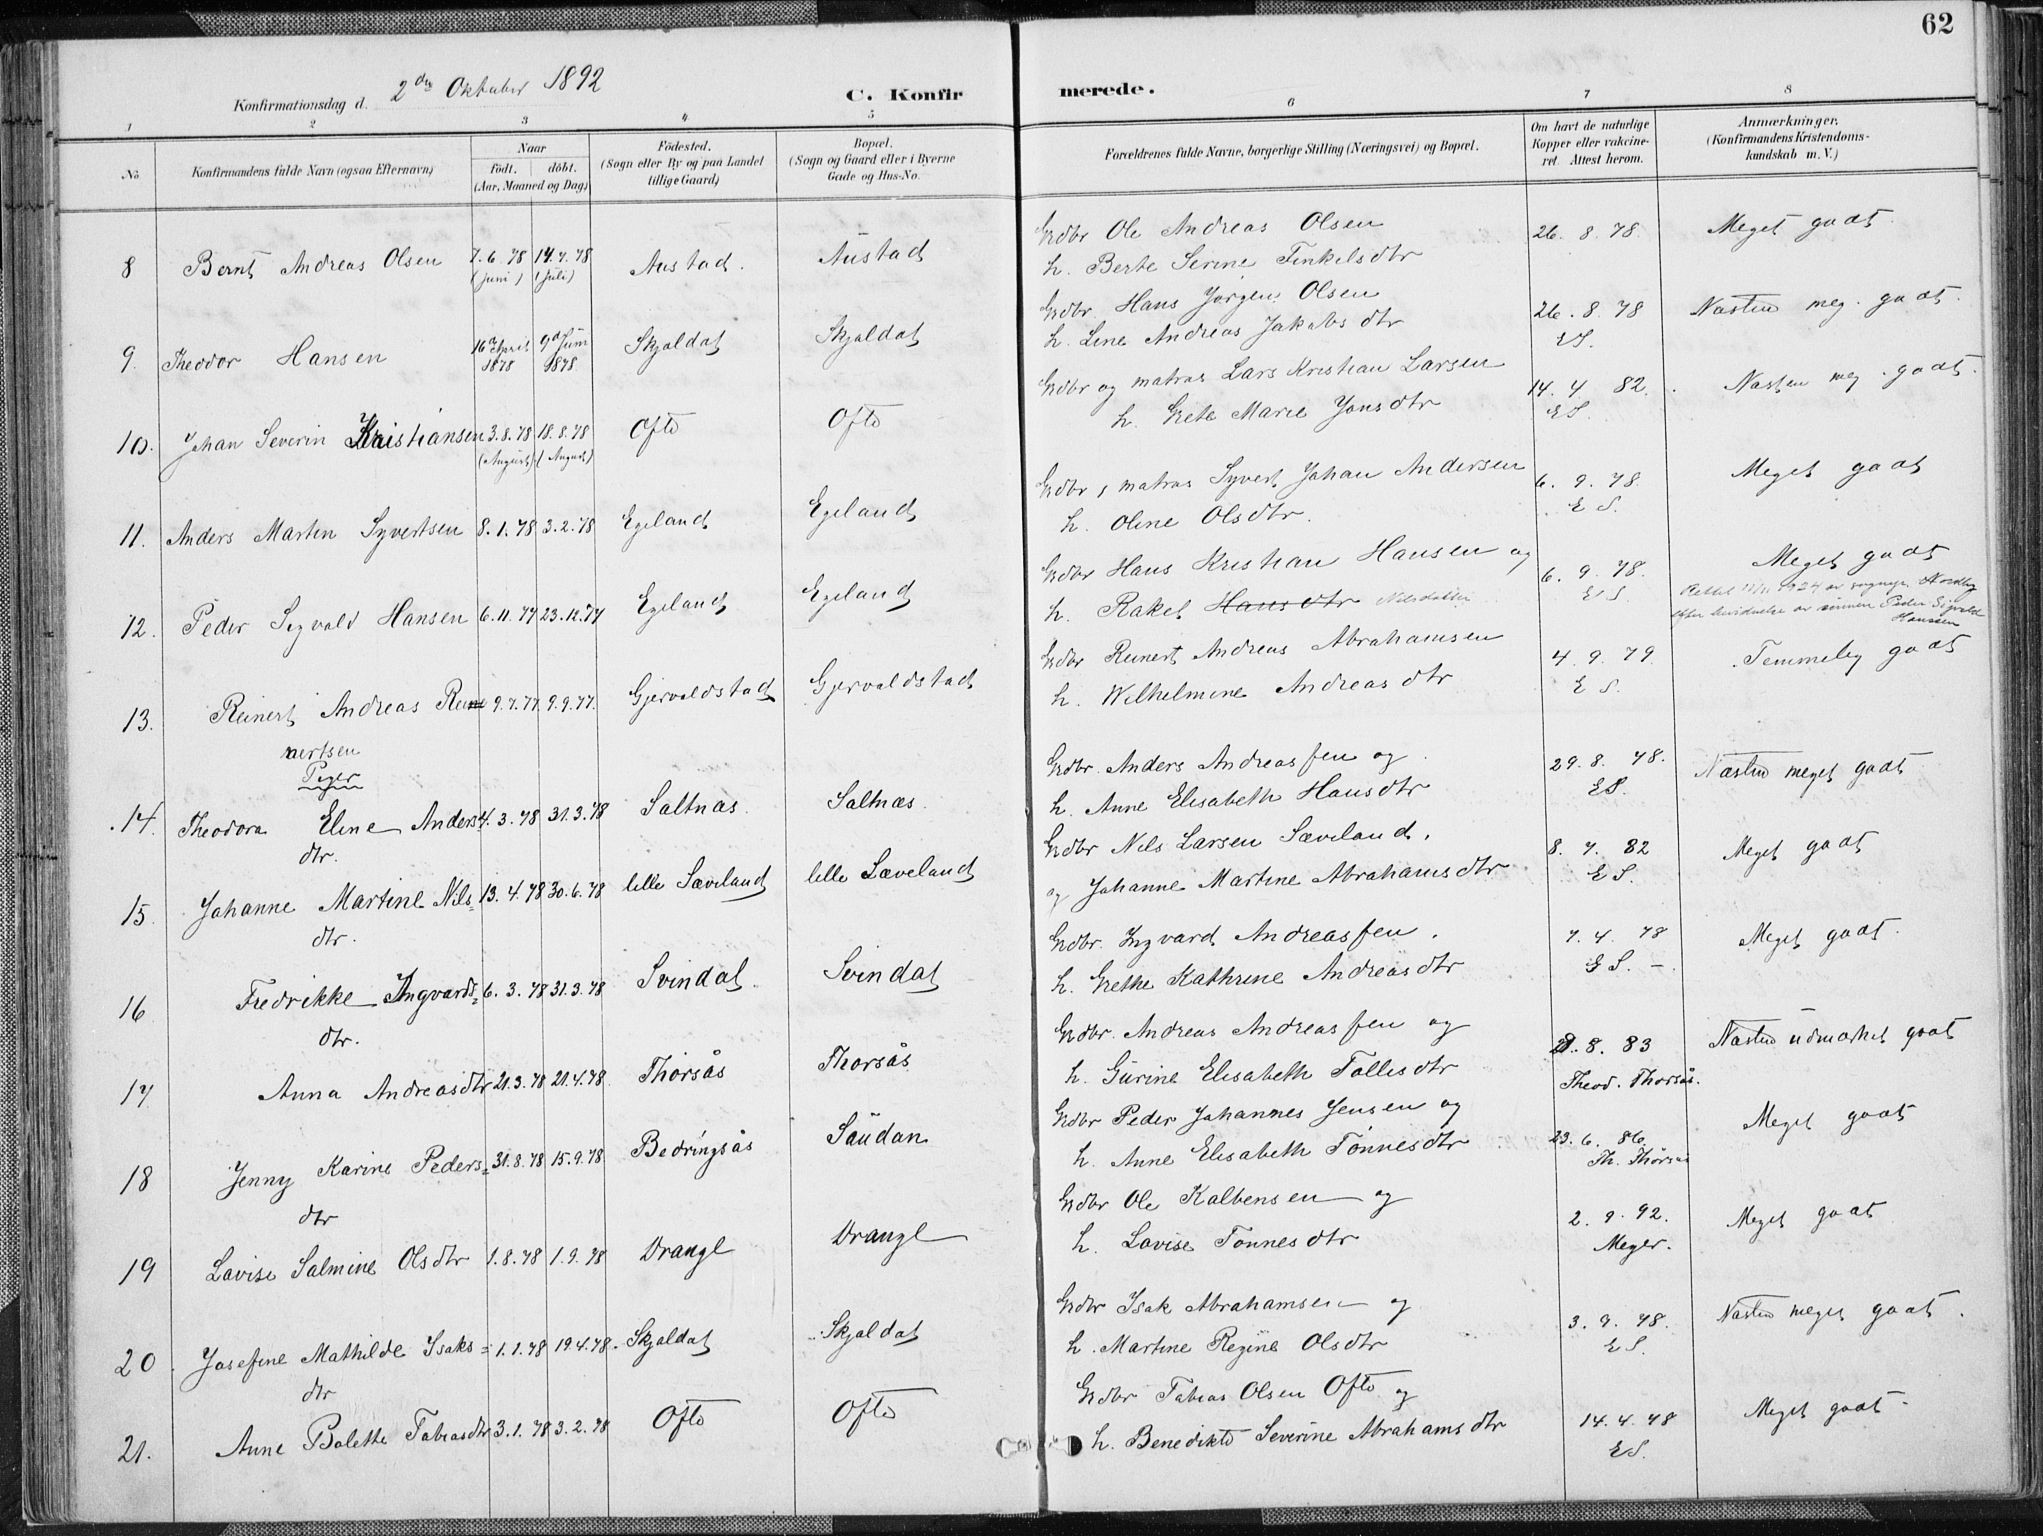 62
Konfirmationsdag d. 2den Oktober 1892
C. Konfirmerede.
1 2 3 4 5 6 7 8
No
Konfirmandens fulde Navn (ogsaa Efternavn)
Naar
født. døbt.
(Aar, Maaned og Dag)
Fødested.
(Sogn eller By og paa Landet
tillige Gaard)
Bopæl.
(Sogn og Gaard eller i Byerne
Gade og Hus-No.
Forældrenes fulde Navne, borgerlige Stilling (Næringsvei) og Bopæl.
Om havt de naturlige
Kopper eller vakcine-
ret Attest herom.
Anmærkninger.
(Konfirmandens Kristendoms-
kundskab m. V.)
8 Bernt Andreas Olsen 7.6.78 14.7.78 Austad. Austad
(juni) (juli)
Gdbr Ole Andreas Olsen 26. 8. 78. Meget godt
h. Berte Serine Tinkelsdtr
9. Theodor Hansen 16de April 1878 9d Juni 1878. Skjoldal Skjoldal
Gdbr. Hans Jørgen Olsen 26. 8. 78 Næsten meg. godt.
h. Line Andreas Jakobsdtr ES.
10. Johan Severin Kristiansen 3.8.78 18.8.78 Ofte Ofte
(August) (August)
Gdbr og matros Lars Kristian Larsen 14. 4 82. Næsten meg. godt.
h. Grete Marie Jonsdtr ES.
11. Anders Martin Syvertsen 8.1.78 3.2.78 Egeland Egeland
Gdbr, matros Syvert Johan Andersen 6. 9. 78. Meget godt
h. Oline Olsdtr. ES.
12. Peder Sigvald Hansen 6.11.77 23.12.77 Egeland Egeland
Gdbr Hans Kristian Hansen og 6. 9. 78. Meget godt
h. Rakel Hansdtr Nilsdatter ES
Rettet 1924 av sognepr. Nordby
efter av sønnen Peder Sigvald
Hanssen
13. Reinert Andreas Rei- 9.7.77 9.9.77. Gjervoldstad Gjervoldstad
nertsen
Gdbr Reinert Andreas Abrahamsen 4. 9. 79. Temmelig godt
h. Wilhelmine Andreasdtr ES.
Piger
14. Theodora Eline Anders 4. 3. 78 31.3.78 Saltnæs Saltnæs.
dtr.
Gdbr. Anders Andreassen og 29. 8. 78. Næsten meget godt
h. Anne Elisabeth Hansdtr ES.
15. Johanne Martine Nils= 13. 4. 78 30.6.78 lille Sæveland lille Sæveland
dtr.
Gdbr Nils Larsen Sæveland. 8. 7. 82 Meget godt
og Johanne Martine Abrahamsdtr ES.
16 Fredrikke Ingvards= 6. 3. 78 31.3.78 Svindal. Svindal
dtr.
Gdbr. Ingvard Andreassen. 7. 4. 78 Meget godt.
h. Grethe Kathrine Andreasdtr ES. –
17 Anna Andreasdtr 21.3.78 21.4.78 Thorsås Thorsås.
Gdbr. Andreas Andreassen og 8. 83 Næsten udmærket godt
h. Gurine Elisabeth Tollisdtr Theod. Thorsås.
18 Jenny Karine Peders= 31.8.78 15.9.78 Bedringsås Saudan
dtr
Gdbr Peder Johannes Jensen og 23. 6. 86. Meget godt
h. Anne Elisabeth Tønnesdtr Th. Thorsås
19 Lovise Salmine Olsdtr 1.8.78 1.9.78 Drangl Drangl
Gdbr Ole Kalbensen og 2. 9. 92. Meget godt
h. Lovise Tønnesdtr Meyer.
20 Josefine Mathilde Isaks= 1.1.78 19.4.78. Skjoldal Skjoldal
dtr
Gdbr Isak Abrahamsen og 3. 9. 78. Næsten meget godt.
h. Martine Regine Olsdtr ES.
21. Anne Bolette Tobiasdtr 3.1.78 3.2.78 Ofte Ofte
Gdbr Tobias Olsen Ofte og 14. 4. 78 Meget godt.
h. Benedikte Severine Abrahamsdtr ES.